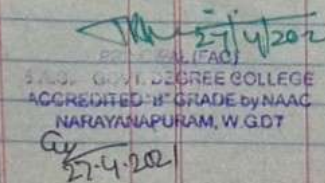 27/4/202
PRINCIPAL (FAC)
GOVT. DEGREE COLLEGE
ACCREDITED "B" GRADE by NAAC
NARAYANAPURAM, W.G.DT
27-4-2021